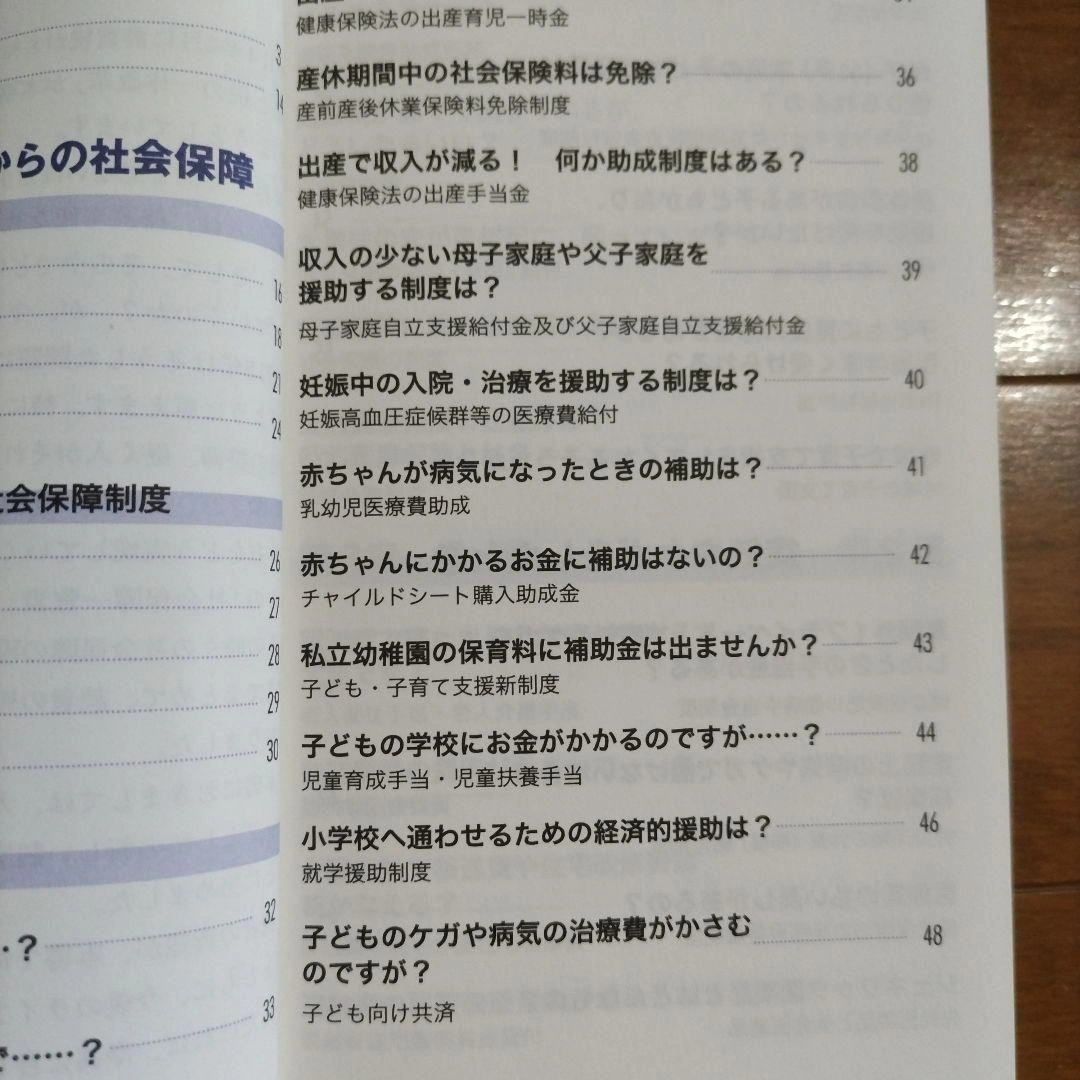 3
14
からの社会保障
16
18
21
24
社会保障制度
26
27
28
29
30
…？ 32
33
……？
健康保険法の出産育児一時金
産休期間中の社会保険料は免除？ 36
産前産後休業保険料免除制度
出産で収入が減る！　何か助成制度はある？ 38
健康保険法の出産手当金
収入の少ない母子家庭や父子家庭を
援助する制度は？ 39
母子家庭自立支援給付金及び父子家庭自立支援給付金
妊娠中の入院・治療を援助する制度は？ 40
妊娠高血圧症候群等の医療費給付
赤ちゃんが病気になったときの補助は？ 41
乳幼児医療費助成
赤ちゃんにかかるお金に補助はないの？ 42
チャイルドシート購入助成金
私立幼稚園の保育料に補助金は出ませんか？ 43
子ども・子育て支援新制度
子どもの学校にお金がかかるのですが……？ 44
児童育成手当・児童扶養手当
小学校へ通わせるための経済的援助は？ 46
就学援助制度
子どものケガや病気の治療費がかさむ
のですが？ 48
子ども向け共済